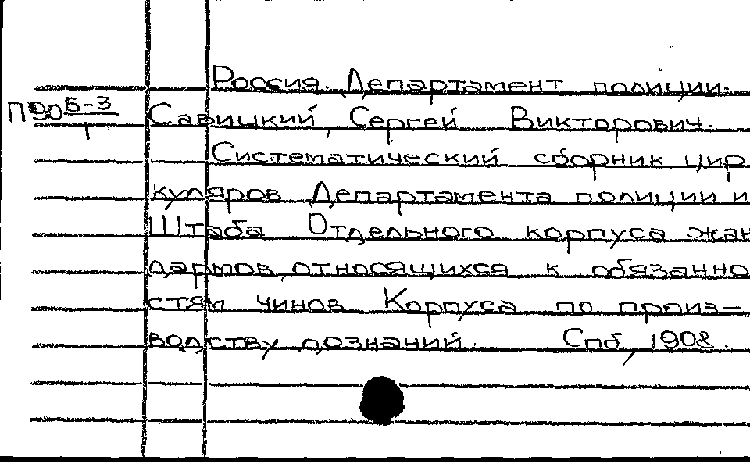 Россия. Департамент полиции.
П90 Б-3/1 Савицкий, Сергей Викторович.
Систематический сборник цир
куляров Департамента полиции и
Штаба Отдельного корпуса жан
дармов, относящихся к обязанно
стям чинов Корпуса по произ-
водству дознаний. Спб, 1908.